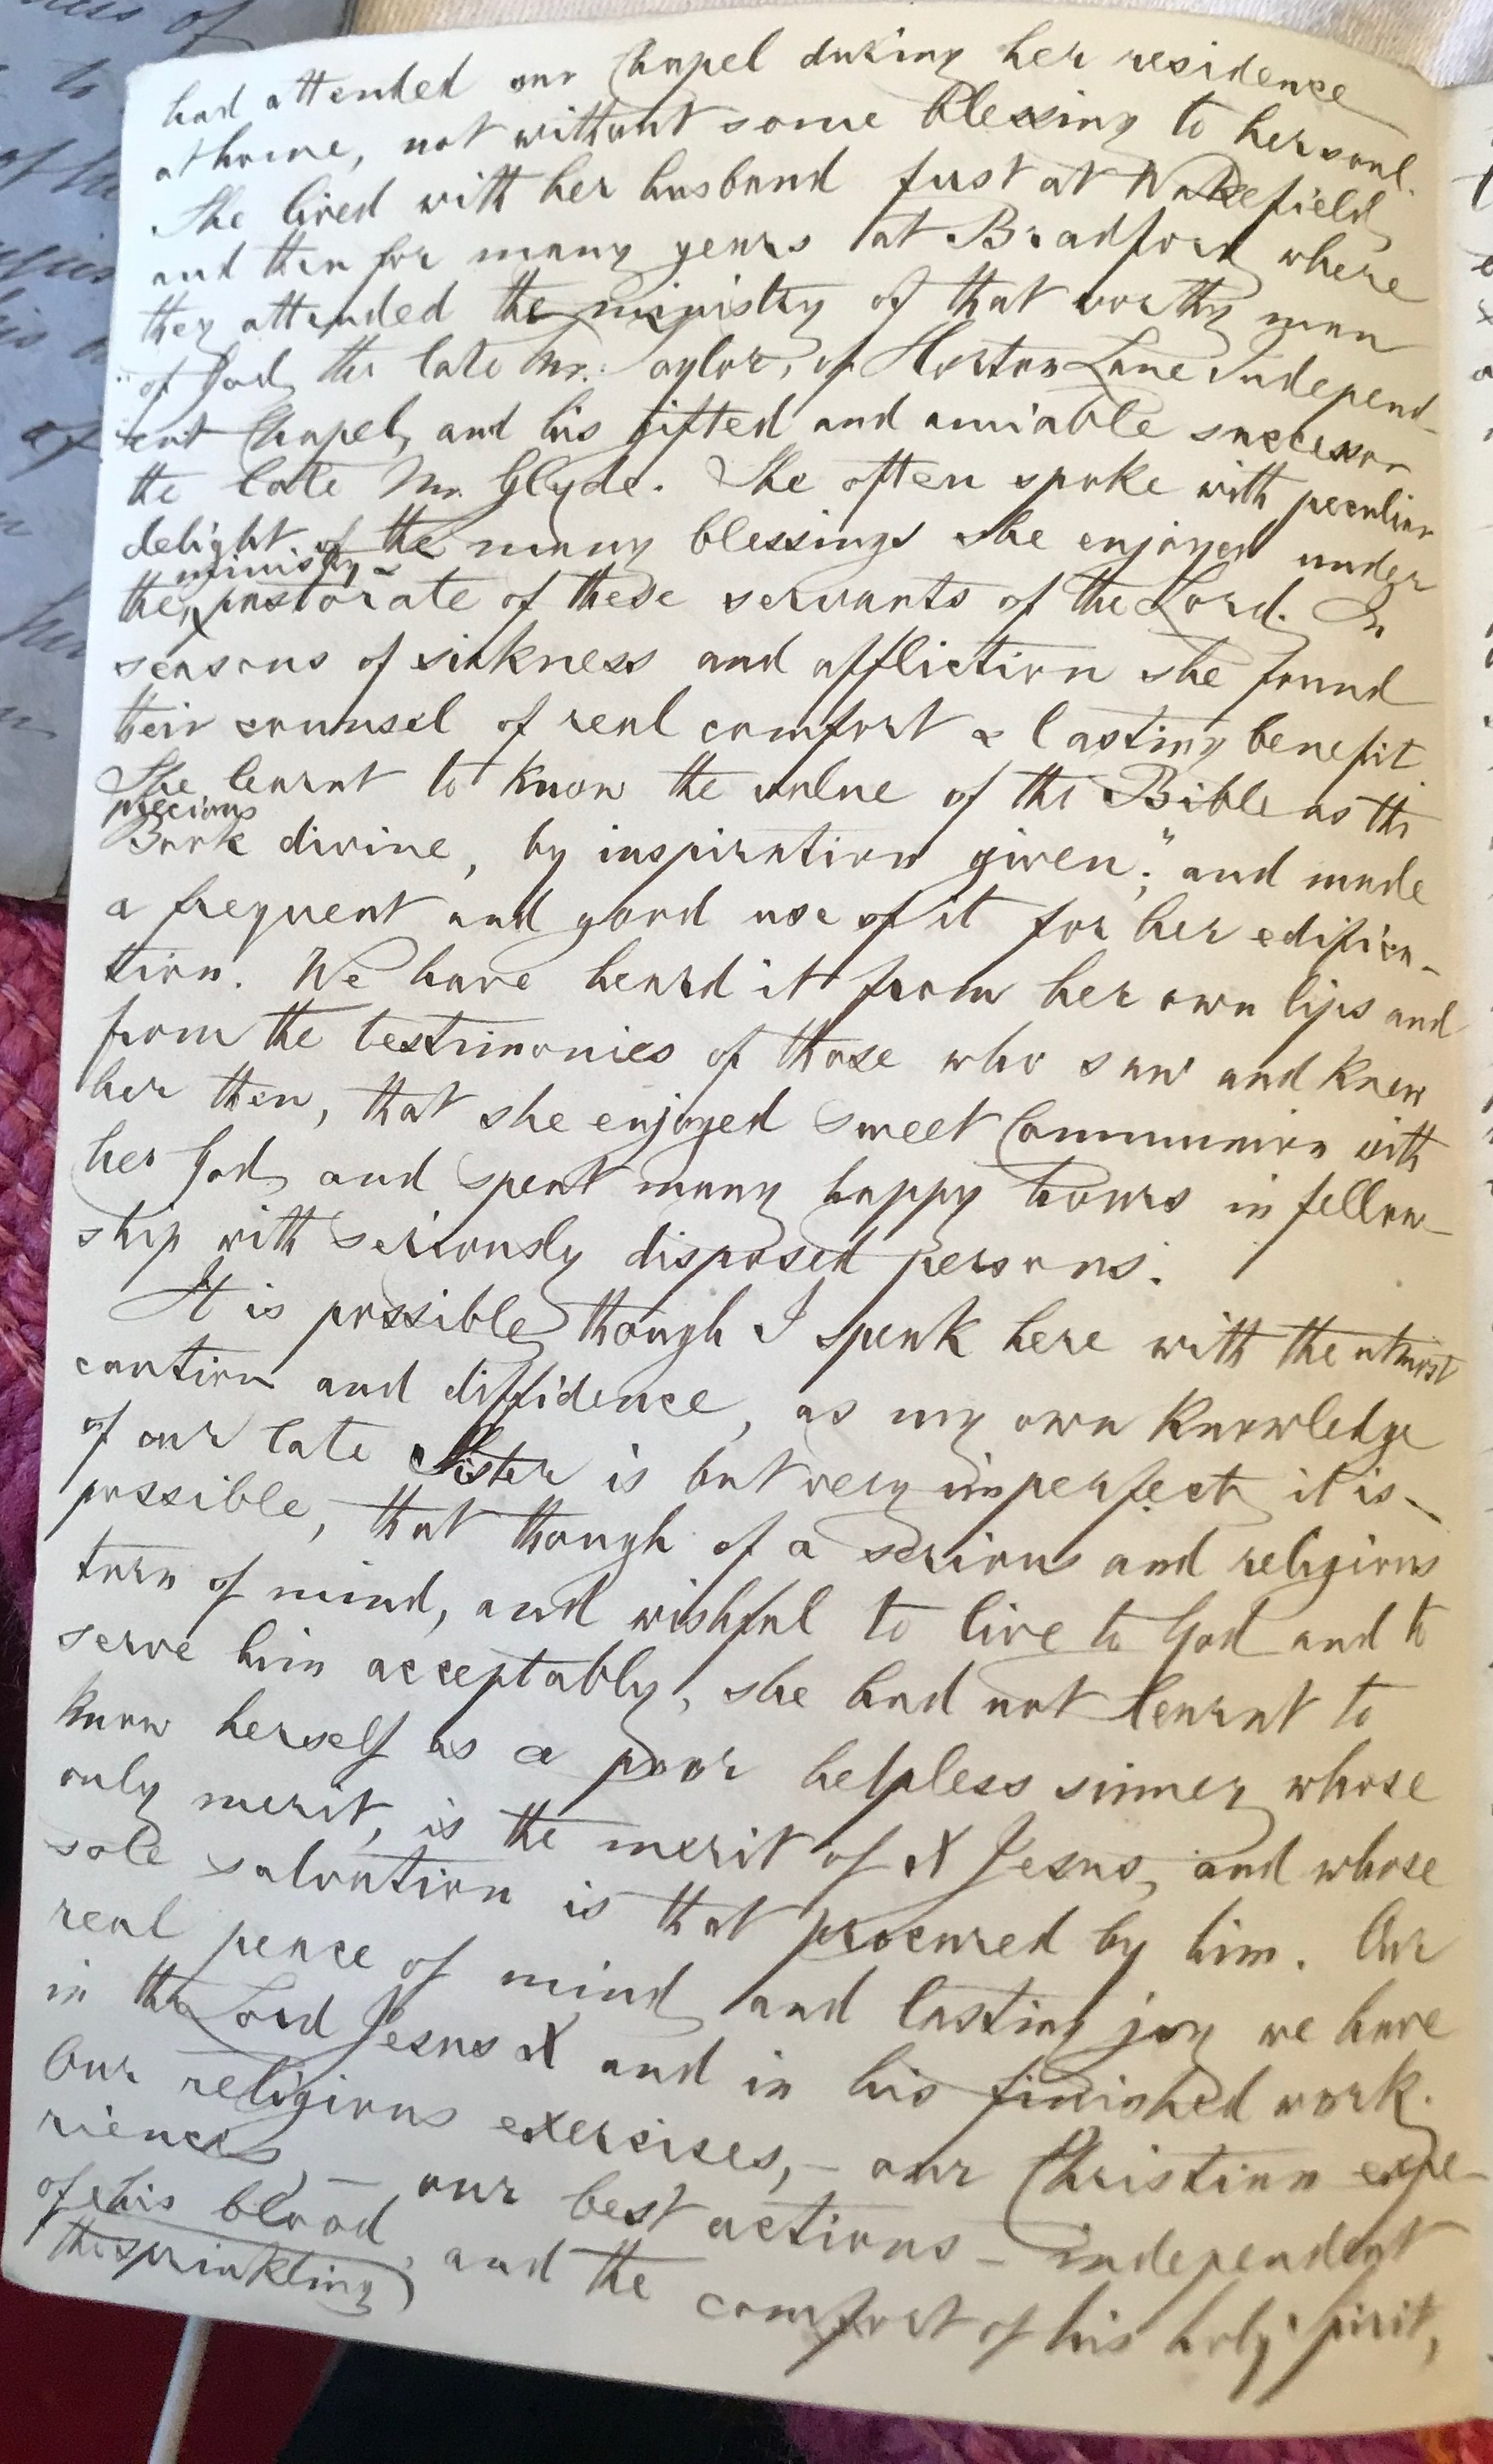 had attended our Chapel during her residence
at home, not without some blessing to her soul.
She lived with her husband first at Wakefield
and then for many years at Bradford where
they attended the ministry of that worthy man
of God, the late Mr. Taylor, of Horton Lane Independ-
ent Chapel, and his gifted and amiable successor
the late Mr. Glyde. She often spoke with peculiar
delight of the many blessings she enjoyed under
ministry &
the pastorate of these servants of the Lord. In
seasons of sickness and affliction she found
their counsel of real comfort & lasting benefit.
She learnt to know the value of the Bible as the
precious
Book divine, by inspiration given;" and made
a frequent and good use of it for her edifica-
tion. We have heard it from her own lips and
from the testimonies of those who saw and knew
her then, that she enjoyed sweet Communion with
her God, and spent many happy hours in fellow-
ship with seriously disposed persons.
It is possible, though I speak here with the utmost
caution and diffidence, as my own knowledge
of our late Sister is but very imperfect, it is
possible, that though of a serious and religious
turn of mind, and wishful to live to God and to
serve him acceptably, she had not learnt to
know herself as a poor helpless sinner, whose
only merit, is the merit of X Jesus, and whose
sole salvation is that procured by him. Our
real peace of mind, and lasting joy we have
in the Lord Jesus X and in his finished work.
Our religious exercises, - our Christian expe-
riences, - our best actions - independent
of his blood, and the comfort of his holy spirit,
the sprinkling